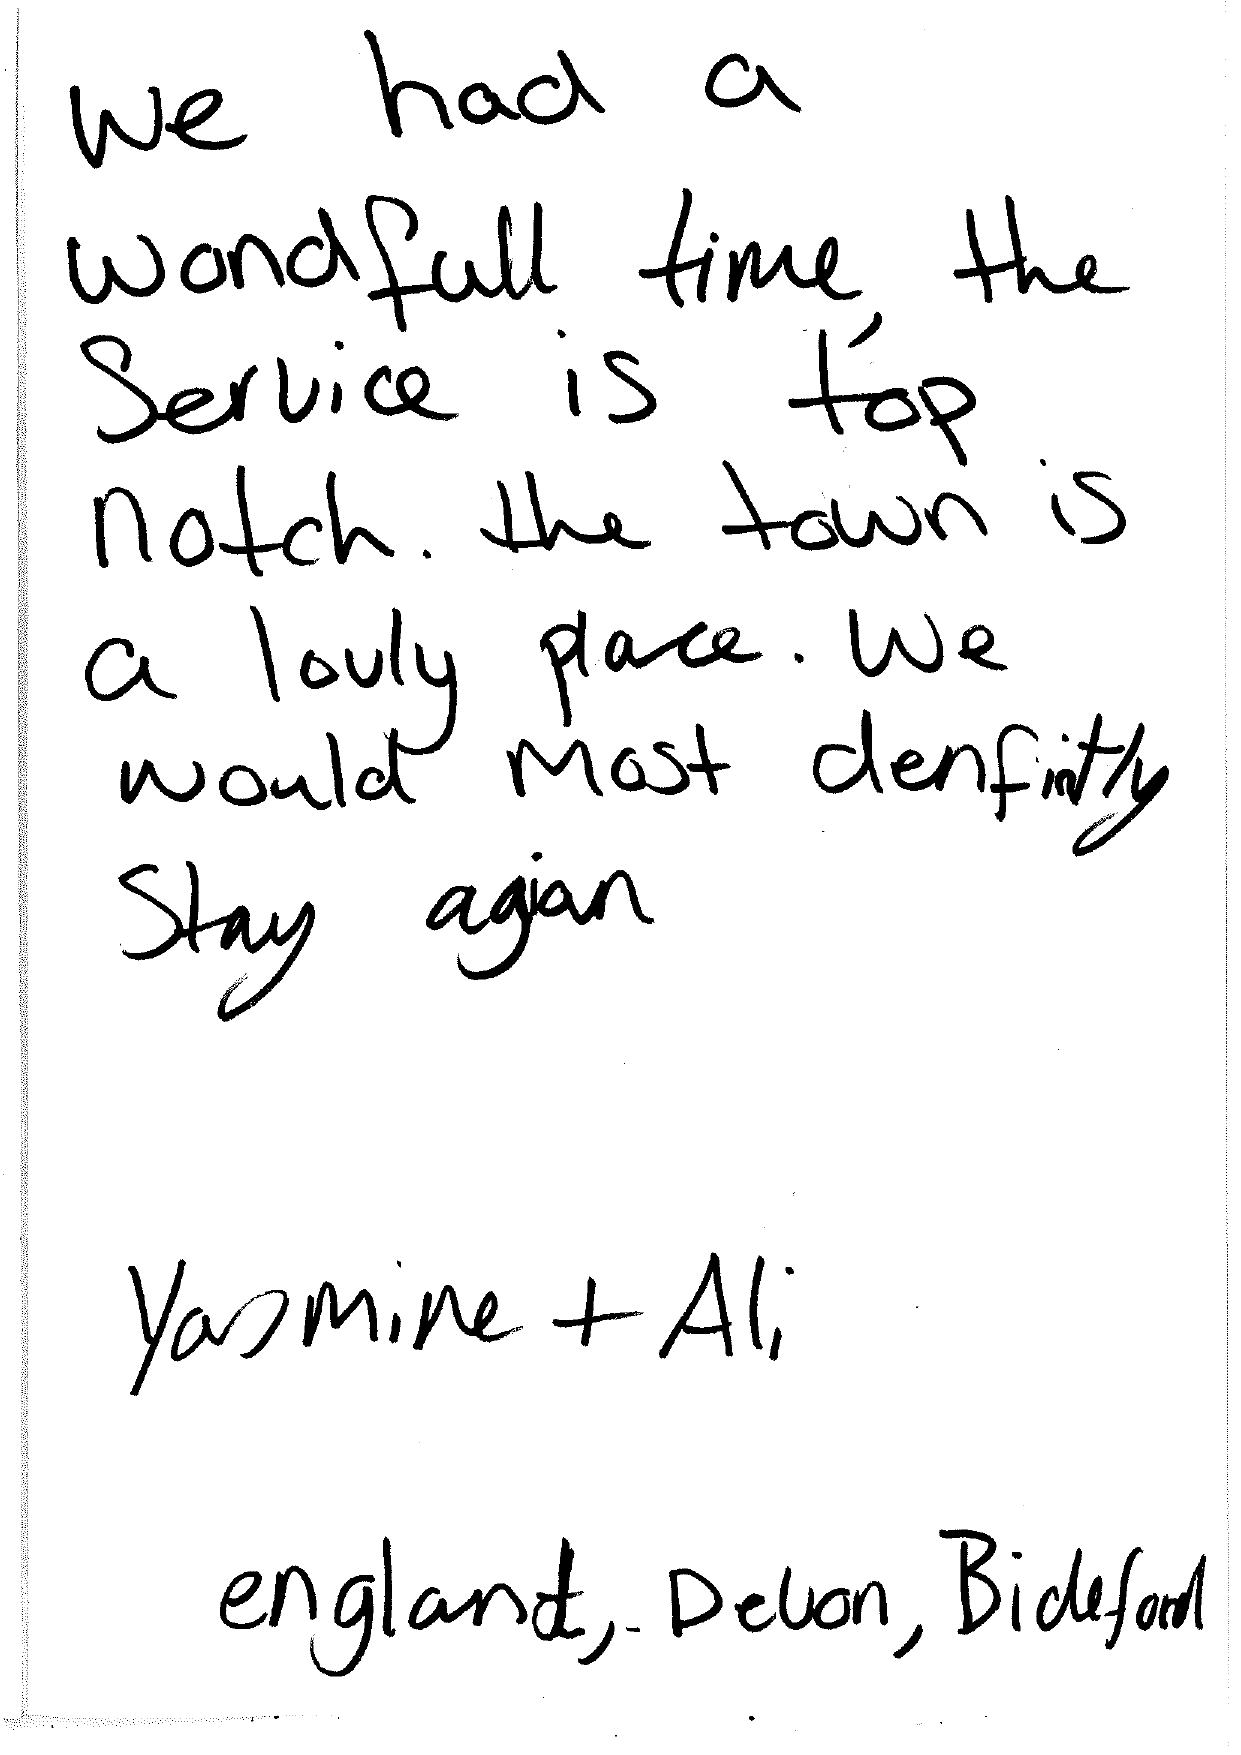 we had a
wondfull time, the
Service is top
notch. the town is
a lovly place. We
would most denfintly
Stay agian
Yasmine + Ali
england, Devon, Bideford